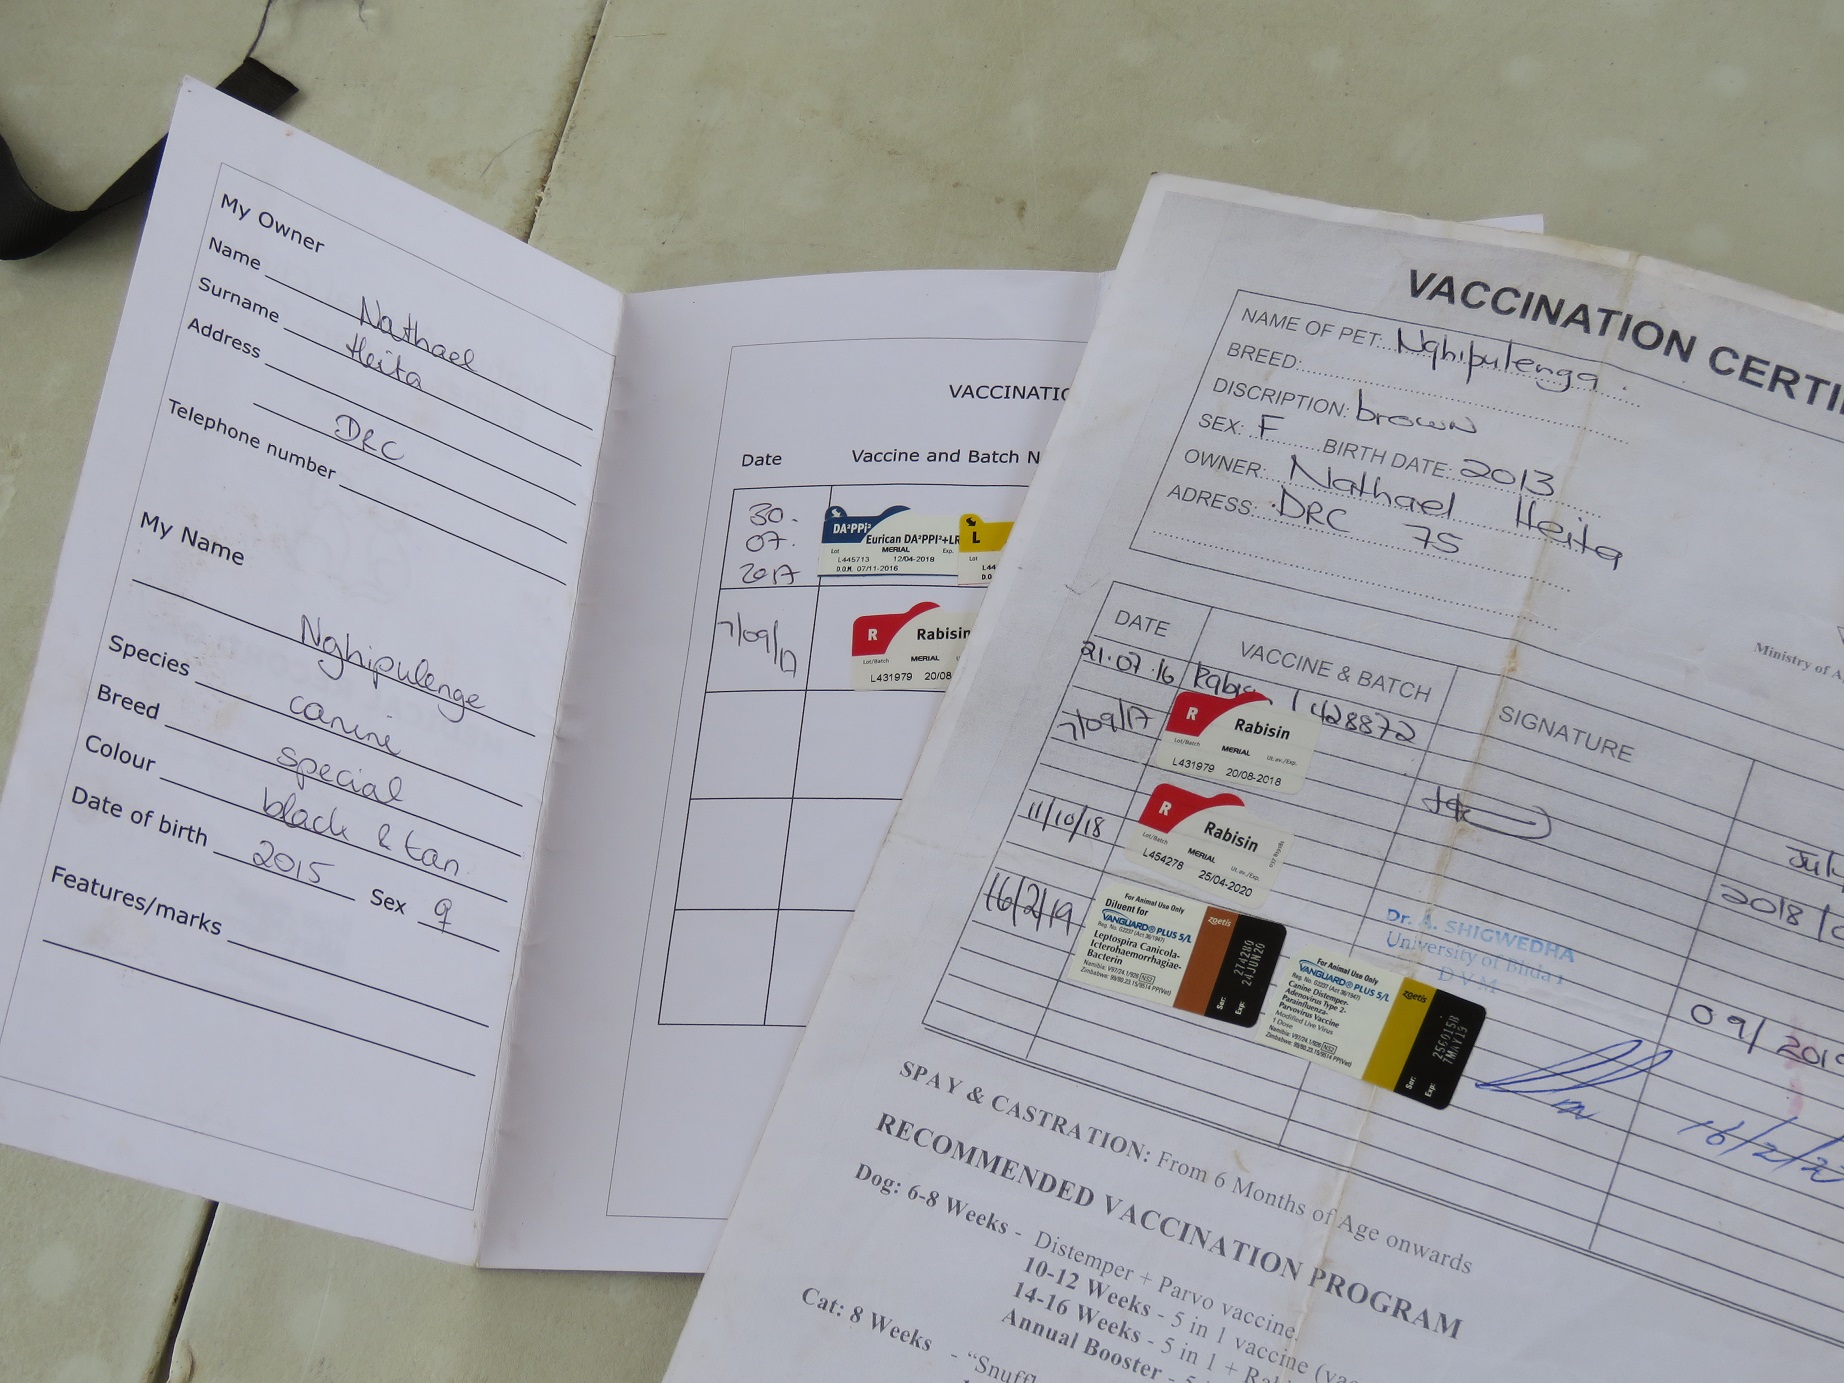 My Owner
Name Nathael
Surname Heita
Address
DRC
Telephone number
My Name
Nghipulenge
Species canine
Breed special
Colour black & tan
Date of birth 2015 Sex ♀
Features/marks
VACCINATIO
Date Vaccine and Batch N
30.
07.
2017
DA²PPi² Eurican DA²PPI²+LR
MERIAL Exp.
Lot
L445713 12/04-2018
D.O.M. 07/11-2016
L
L44
D.O.
7/09/17
R Rabisin
Lot/Batch MERIAL
L431979 20/08
VACCINATION CERTI
NAME OF PET: Nghipulenga.
BREED:
DISCRIPTION: brown
SEX: F BIRTH DATE: 2013
OWNER: Nathael Heita
ADRESS: DRC 75
Ministry of A
DATE VACCINE & BATCH SIGNATURE
21.07.16 Rabis L428872
7/09/17
R Rabisin
Lot/Batch MERIAL Ut. av./Exp.
L431979 20/08-2018
July
11/10/18
R Rabisin
Lot/Batch MERIAL Ut. av./Exp.
L454278 25/04-2020
2018/
16/2/19
For Animal Use Only
Diluent for
VANGUARD® PLUS 5/L
Reg. No. G2237 (Act 36/1947)
Leptospira Canicola-
Icterohaemorrhagiae-
Bacterin
Namibia: V97/24.1/926 NS2
Zimbabwe: 99/80.23.15/9514 PP(Vet)
zoetis
Ser: 274280
Exp: 24JUN20
For Animal Use Only
VANGUARD® PLUS 5/L
Reg. No. G2237 (Act 36/1947)
Canine Distemper-
Adenovirus Type 2-
Parainfluenza-
Parvovirus Vaccine
Modified Live Virus
1 Dose
Namibia: V97/24.1/926 NS2
Zimbabwe: 99/80.23.15/9514 PP(Vet)
zoetis
Ser: 256015B
Exp: 7MAY19
Dr. A. SHIGWEDHA
University of
DVM
09/2019
16/2/2
SPAY & CASTRATION: From 6 Months of Age onwards
RECOMMENDED VACCINATION PROGRAM
Dog: 6-8 Weeks - Distemper + Parvo vaccine.
10-12 Weeks - 5 in 1 vaccine
14-16 Weeks - 5 in 1 vaccine (vac
Annual Booster - 5 in 1 + Rab
Cat: 8 Weeks - “Snuffl